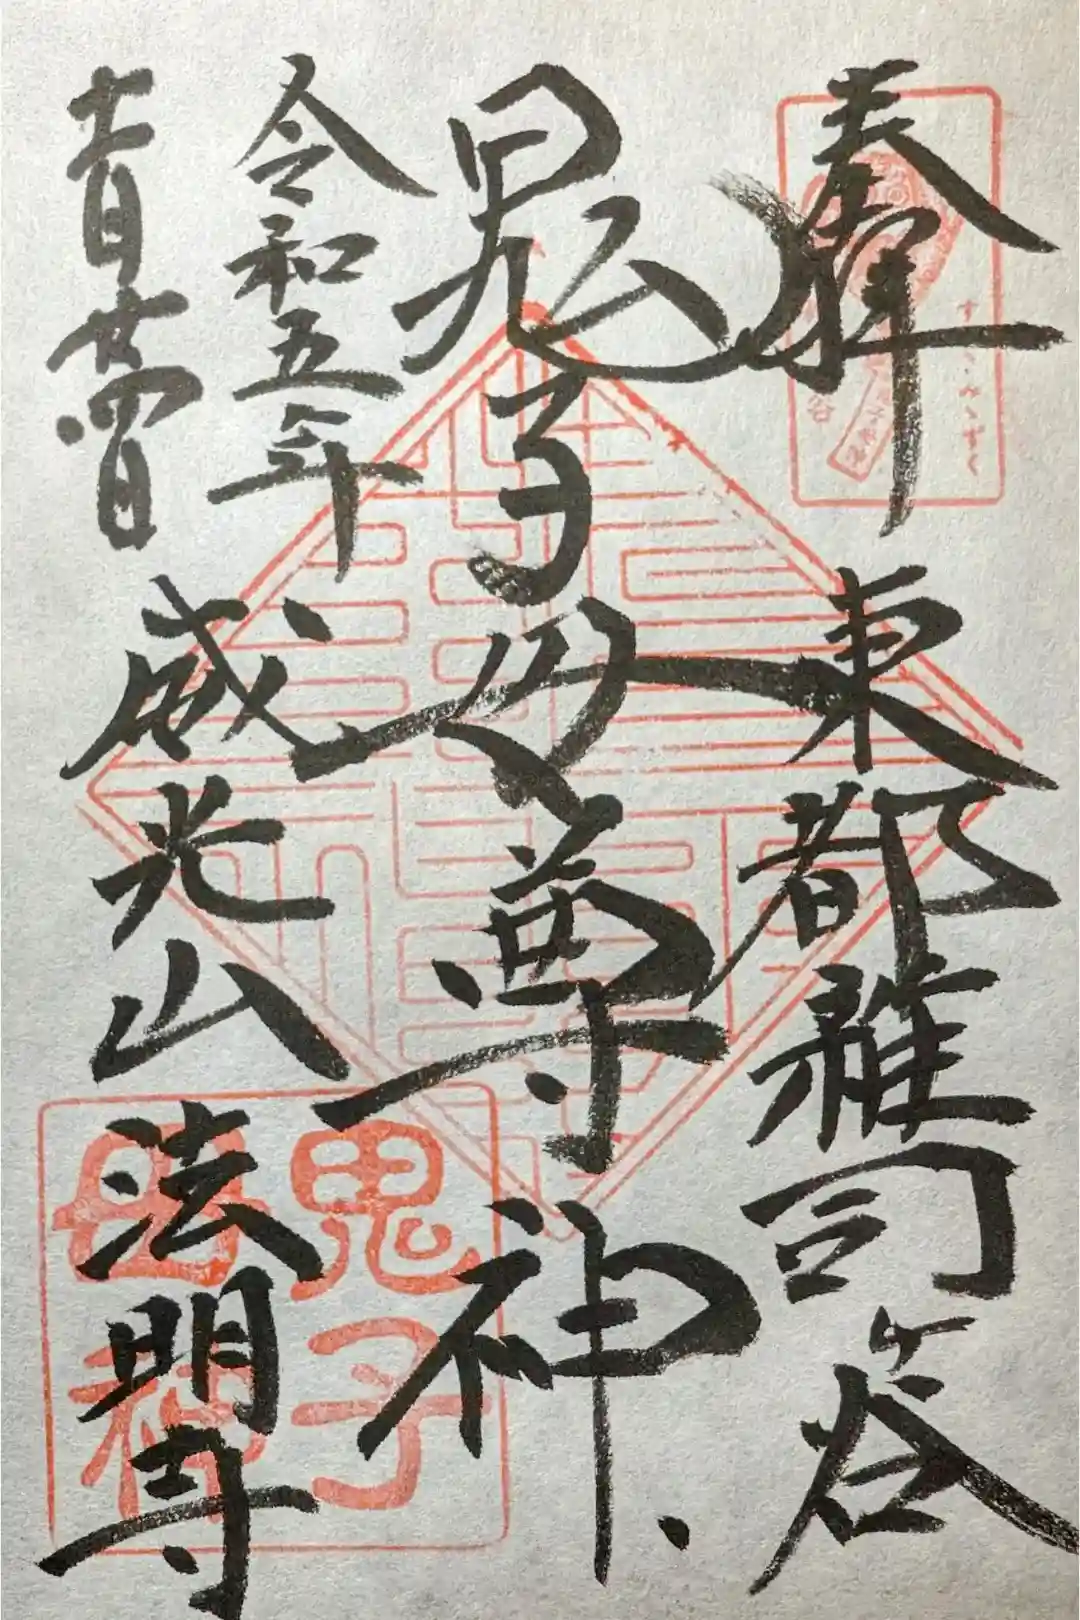 奉拝
東都雑司谷
鬼子母尊神
令和五年
十一月廿四日
威光山
法明寺
鬼子
母神
すすきみみずく